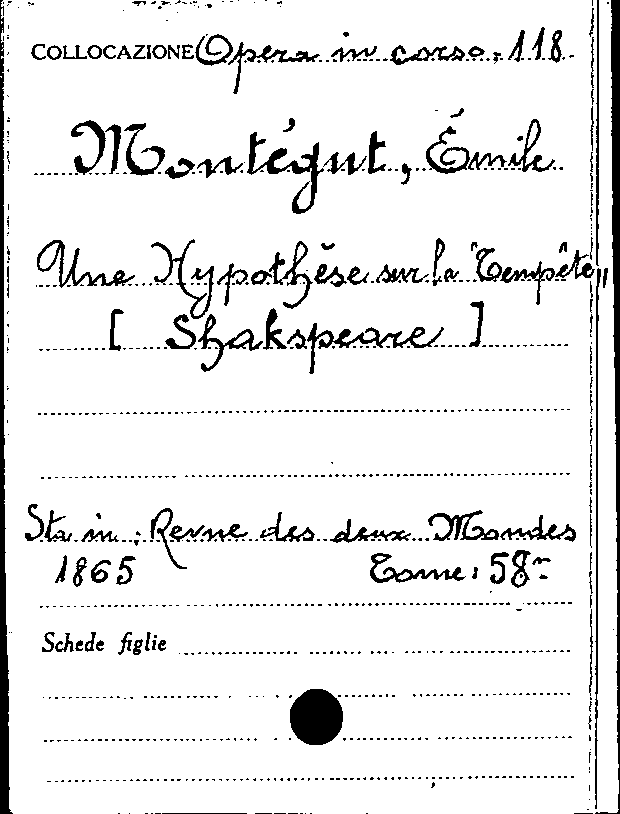 COLLOCAZIONE Opera in corso. 118
Montégut, Émile
Une Hypothèse sur la "Tempête"
[ Shakspeare ]
Sta in: Revue des deux Mondes
1865 Tome: 58me
Schede figlie